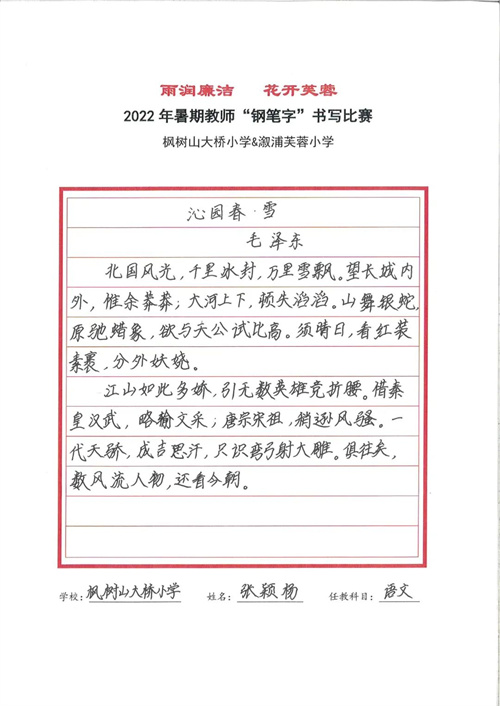 雨润廉洁 花开芙蓉
2022年暑期教师“钢笔字”书写比赛
枫树山大桥小学&溆浦芙蓉小学
沁园春·雪
毛泽东
北国风光，千里冰封，万里雪飘。望长城内
外，惟余莽莽；大河上下，顿失滔滔。山舞银蛇，
原驰蜡象，欲与天公试比高。须晴日，看红装
素裹，分外妖娆。
江山如此多娇，引无数英雄竞折腰。惜秦
皇汉武，略输文采；唐宗宋祖，稍逊风骚。一
代天骄，成吉思汗，只识弯弓射大雕。俱往矣，
数风流人物，还看今朝。
学校：枫树山大桥小学 姓名：张颖杨 任教科目：语文